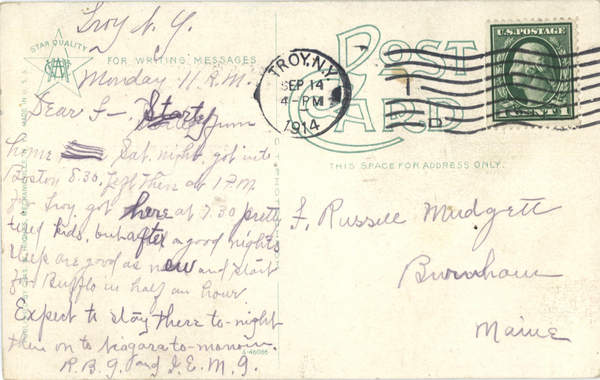 Troy N. Y.
STAR QUALITY
FOR WRITING MESSAGES
Monday 11 A.M.
Dear F— Started from
home Sat. night, got into
Boston 8.30, Left there at 1 P.M.
for Troy, got here at 7.30 pretty
tired kids, but after a good nights
sleep are good as new and start
for Buffalo in half an hour.
Expect to stay there to-night
then on to Niagara to-morrow.
R.B.G. and I.E.M.G.
A-46086
POST
CARD
TROY, N.Y.
SEP 14
4-PM
1914
U.S. POSTAGE
THIS SPACE FOR ADDRESS ONLY.
F. Russell Mudgett
Burnham
Maine